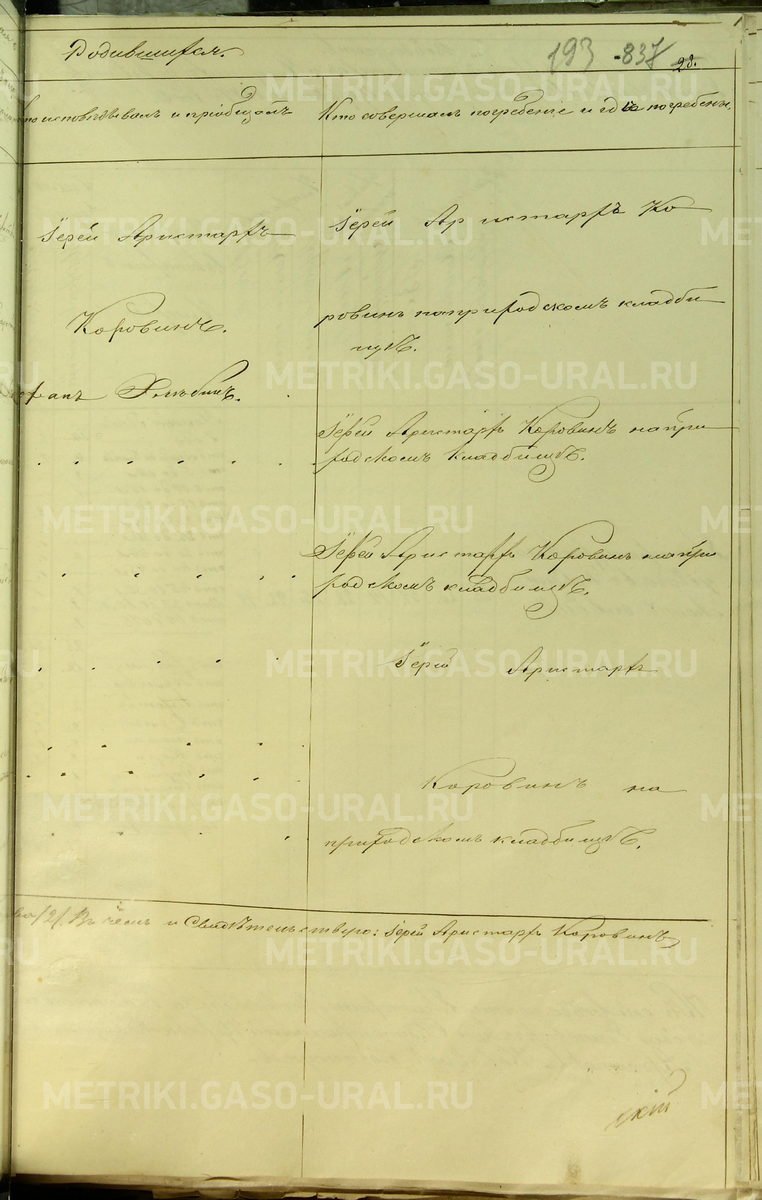 193 837 28.
Кто исповѣдывалъ и пріобщалъ
Кто совершалъ погребеніе и гдѣ погребены.
Іерей Аристархъ
Коровинъ.
Іерей Аристархъ Ко
ровинъ на приходскомъ кладби
щѣ.
Іерей Аристархъ Коровинъ на при
ходскомъ кладбищѣ.
Іерей Аристархъ Коровинъ на при
ходскомъ кладбищѣ.
Іерей Аристархъ
Коровинъ на
приходскомъ кладбищѣ.
/2/. Въ чемъ и свидѣтельствую: Іерей Аристархъ Коровинъ
скій
METRIKI.GASO-URAL.RU